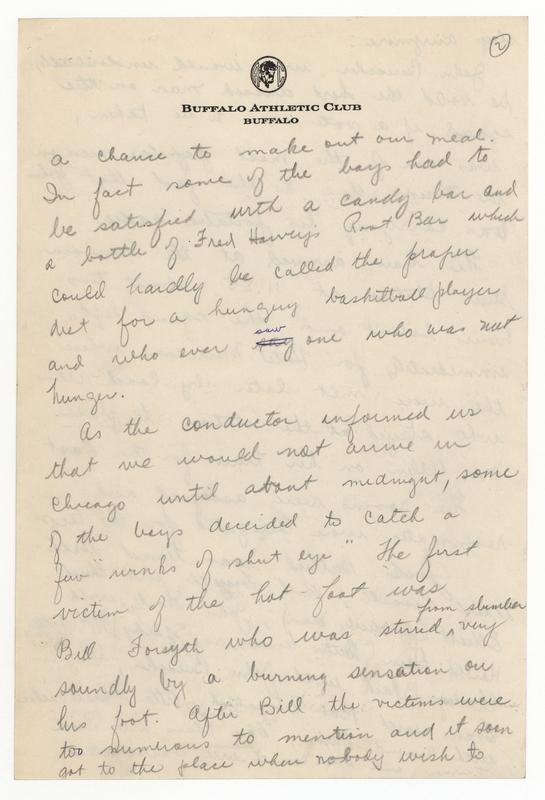 2
BUFFALO ATHLETIC CLUB
BUFFALO
a chance to make out our meal.
In fact some of the boys had to
be satisfied with a candy bar and
a bottle of Fred Harvey's Root Bar which
could hardly be called the proper
diet for a hungry basketball player
and who ever saw one who was not
hunger.
As the conductor informed us
that we would not arrive in
Chicago until about midnight, some
of the boys decided to catch a
few "winks of shut eye" The first
victim of the hot-foot was
from slumber
Bill Forsyth who was stirred, very
soundly by a burning sensation on
his foot. After Bill the victims were
too numerous to mention and it soon
got to the place when nobody wish to